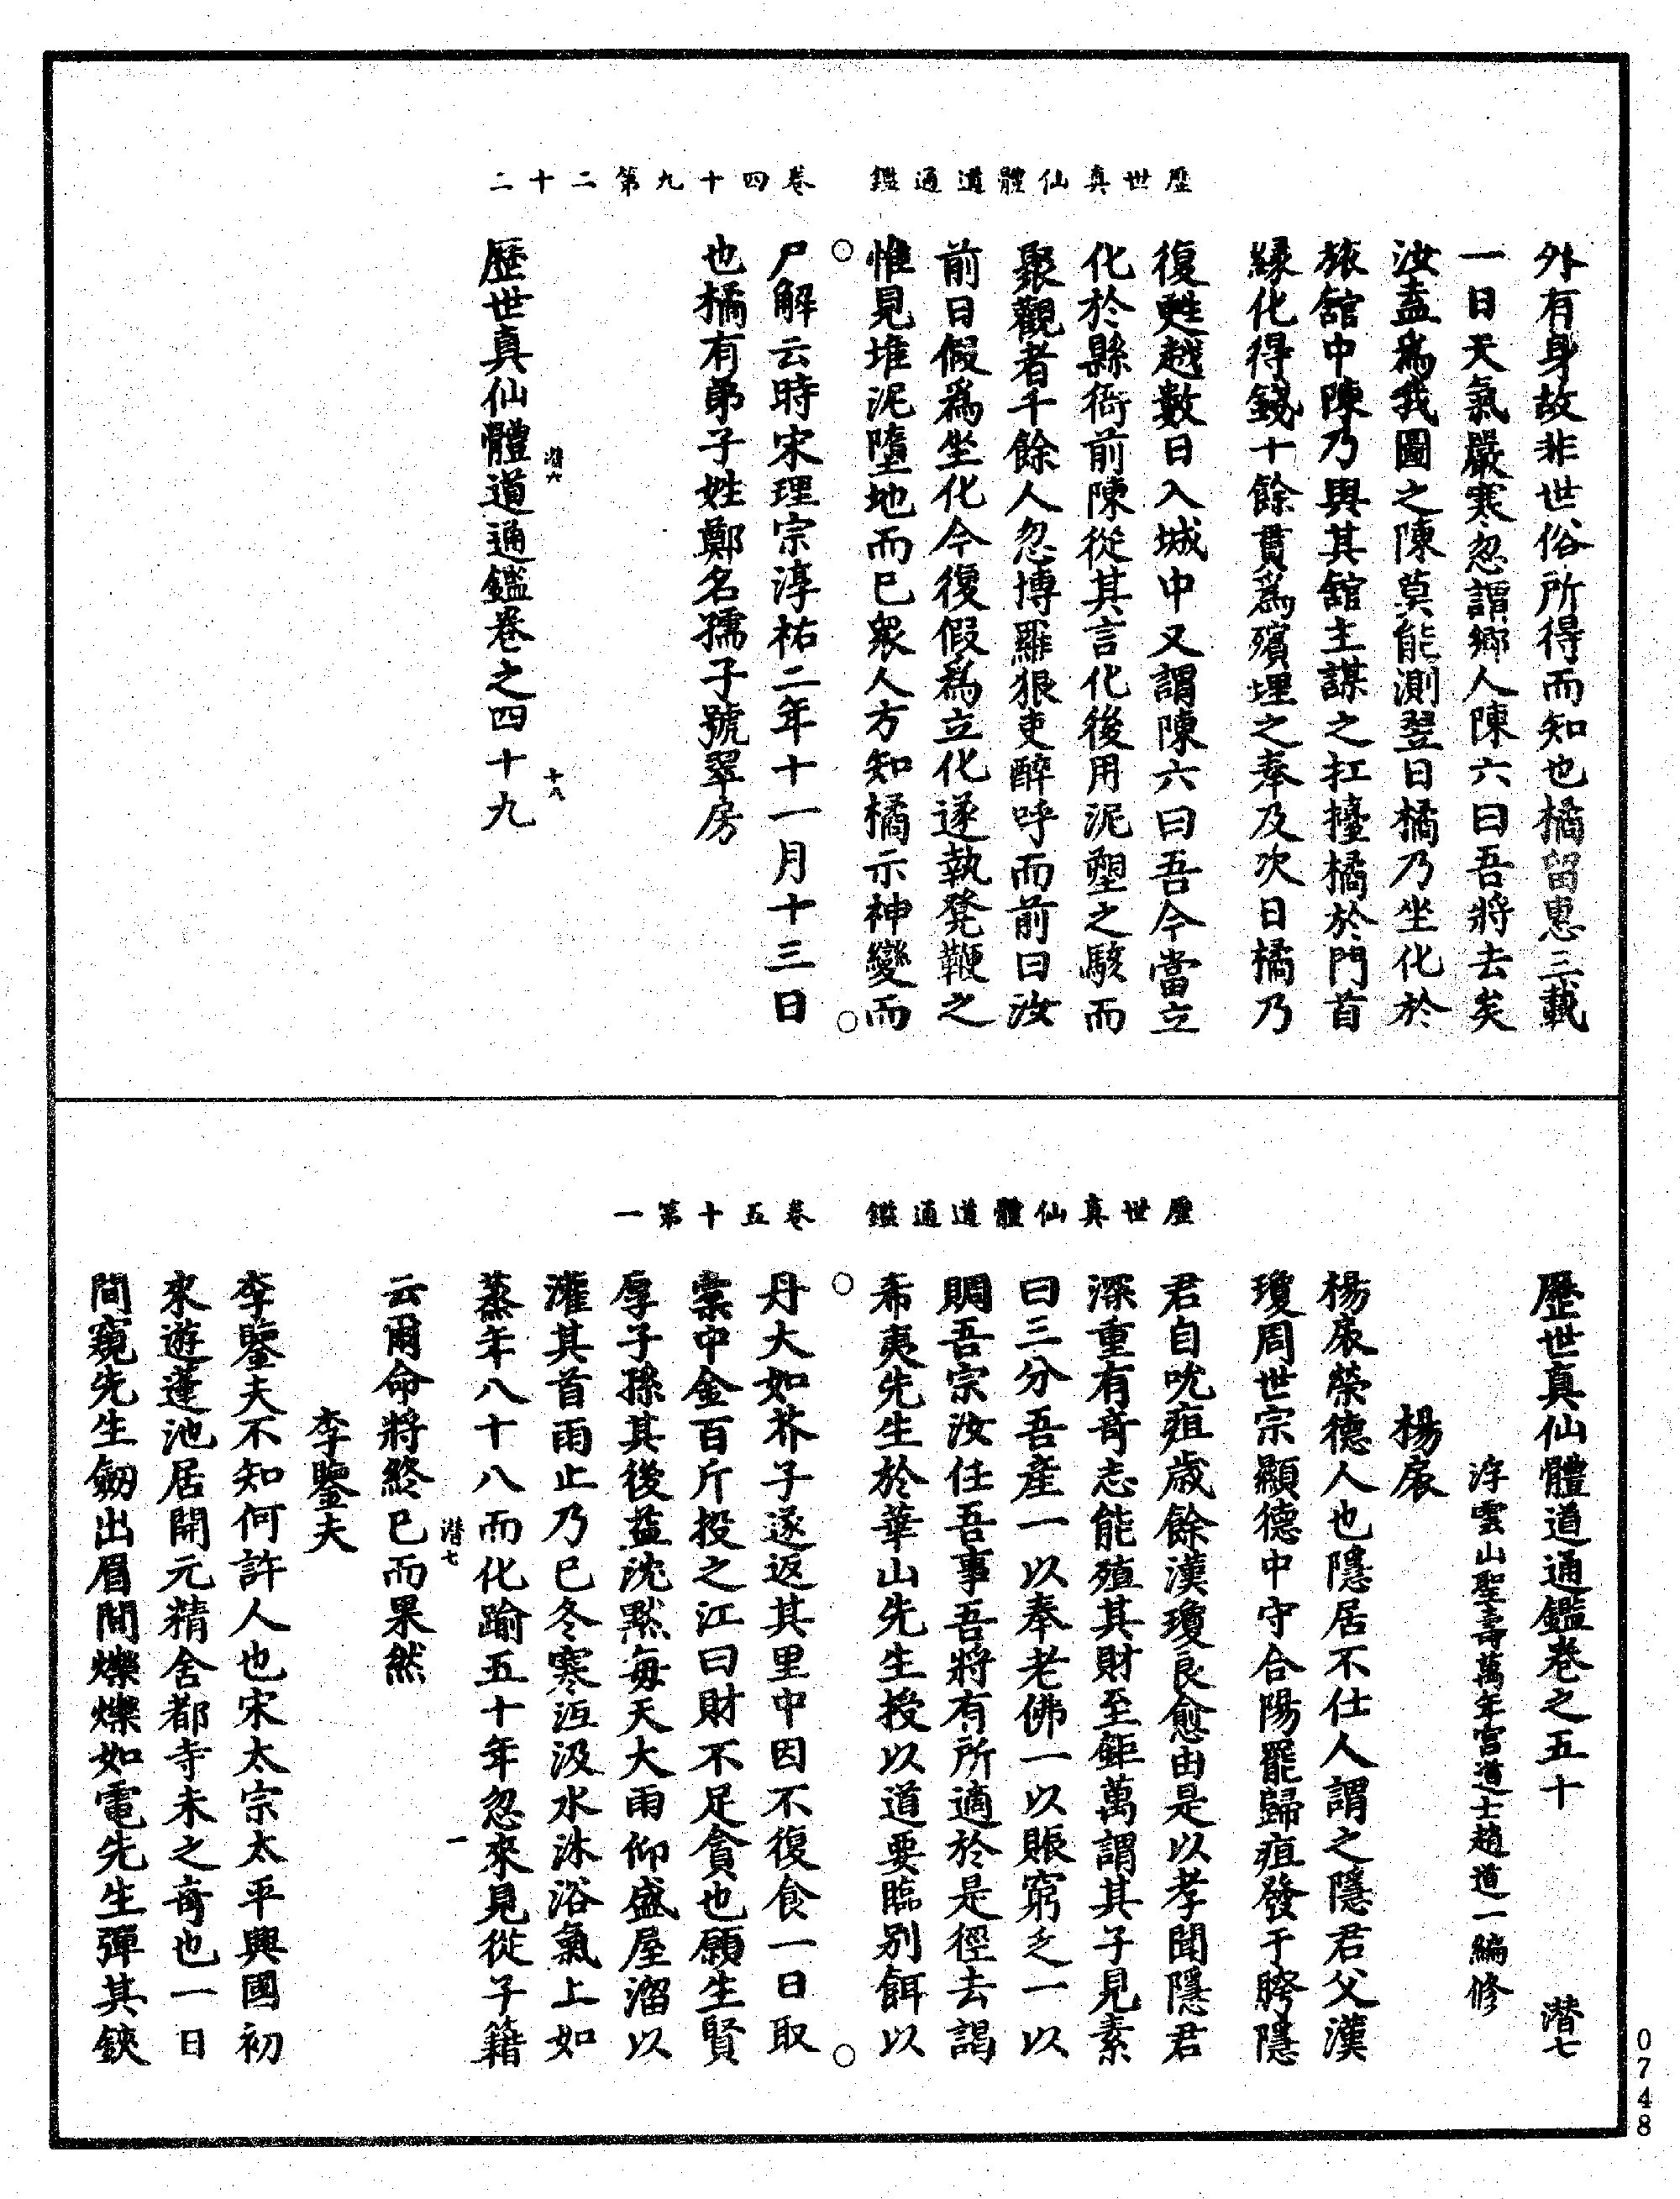 歷世真仙體道通鑑　卷四十九第二十二
外有身故非世俗所得而知也橘留惠三載
一日天氣嚴寒忽謂鄉人陳六曰吾將去矣
汝盍爲我圖之陳莫能測翌日橘乃坐化於
旅舘中陳乃與其舘主謀之扛擡橘於門首
緣化得錢十餘貫爲殯埋之奉及次日橘乃
復甦越數日入城中又謂陳六曰吾今當立
化於縣衙前陳從其言化後用泥塑之駭而
聚觀者千餘人忽博羅狠吏醉呼而前曰汝
前日假爲坐化今復假爲立化遂執凳鞭之
惟見堆泥墮地而已衆人方知橘示神變而
尸解云時宋理宗淳祐二年十一月十三日
也橘有弟子姓鄭名孺子號翠房
潛六　十八
歷世真仙體道通鑑卷之四十九
歷世真仙體道通鑑　卷五十第一
歷世真仙體道通鑑卷之五十　潛七
浮雲山聖壽萬年宮道士趙道一編修
楊㞧
楊㞧榮德人也隱居不仕人謂之隱君父漢
瓊周世宗顯德中守合陽罷歸疽發于胯隱
君自吮疽歲餘漢瓊良愈由是以孝聞隱君
深重有奇志能殖其財至鉅萬謂其子見素
曰三分吾產一以奉老佛一以賬窮乏一以
賙吾宗汝任吾事吾將有所適於是徑去謁
希夷先生於華山先生授以道要臨別餌以
丹大如芥子遂返其里中因不復食一日取
橐中金百斤投之江曰財不足貪也願生賢
厚子孫其後益沈默每天大雨仰盛屋溜以
灌其首雨止乃已冬寒沍汲水沐浴氣上如
蒸年八十八而化踰五十年忽來見從子籍
潛七　一
云爾命將終已而果然
李鑒夫
李鑒夫不知何許人也宋太宗太平興國初
來遊蓬池居開元精舍都寺未之奇也一日
間窺先生劒出眉間爍爍如電先生彈其鋏
0748